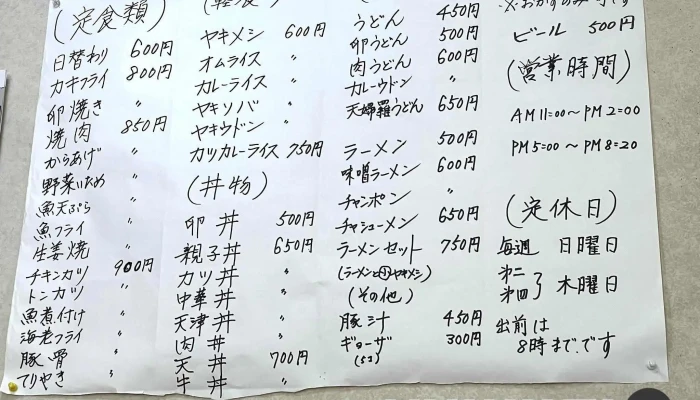 (定食類)
日替わり 600円
カキフライ 800円
卵焼き 〃
焼肉 850円
からあげ 〃
野菜いため 〃
魚天ぷら 〃
魚フライ 〃
生姜焼 〃
チキンカツ 900円
トンカツ 〃
魚煮付け 〃
海老フライ 〃
豚骨 〃
てりやき 〃
ヤキメシ 600円
オムライス 〃
カレーライス 〃
ヤキソバ 〃
ヤキウドン 〃
カツカレーライス 750円
(丼物)
卵丼 500円
親子丼 650円
カツ丼 〃
中華丼 〃
天津丼 〃
肉丼 〃
天丼 700円
牛丼 〃
うどん 450円
卵うどん 500円
肉うどん 600円
カレーウドン 〃
天婦羅うどん 650円
ラーメン 500円
味噌ラーメン 600円
チャンポン 〃
チャシューメン 650円
ラーメンセット 750円
(ラーメンと小ヤキメシ)
(その他)
豚汁 450円
ギョーザ 300円
(5コ)
ビール 500円
(営業時間)
AM11:00〜PM2:00
PM5:00〜PM8:20
(定休日)
毎週 日曜日
第二
第四 } 木曜日
出前は
8時まで.です